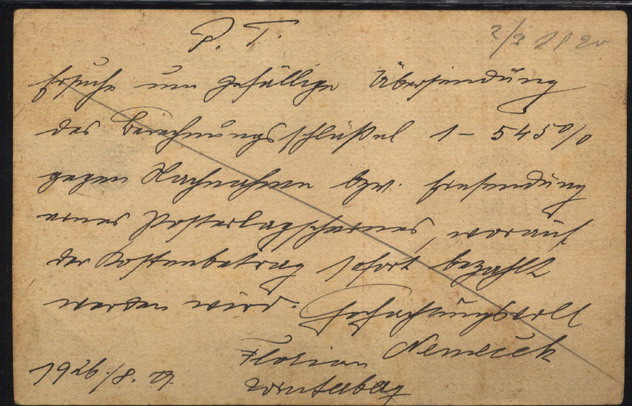 P. T.
2/3 11 20
Ersuche um gefällige Übersendung
des Berechnungsschlüßel 1 – 545%
gegen Nachnahme bzw. Einsendung
eines Posterlagscheines, worauf
der Kostenbetrag sofort bezahlt
werden wird. Hochachtungsvoll
Florian Nemecek
1926./8. 19.